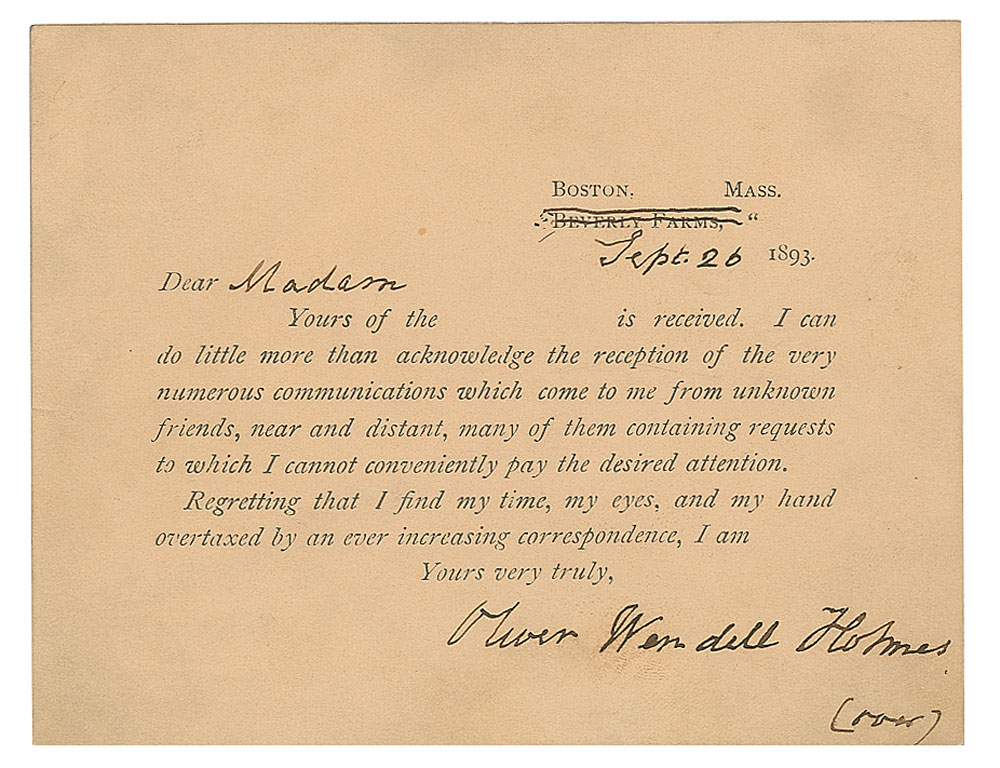 BOSTON, MASS.
BEVERLY FARMS, "
Sept. 26 1893.
Dear Madam
Yours of the is received. I can
do little more than acknowledge the reception of the very
numerous communications which come to me from unknown
friends, near and distant, many of them containing requests
to which I cannot conveniently pay the desired attention.
Regretting that I find my time, my eyes, and my hand
overtaxed by an ever increasing correspondence, I am
Yours very truly,
Oliver Wendell Holmes.
(over)